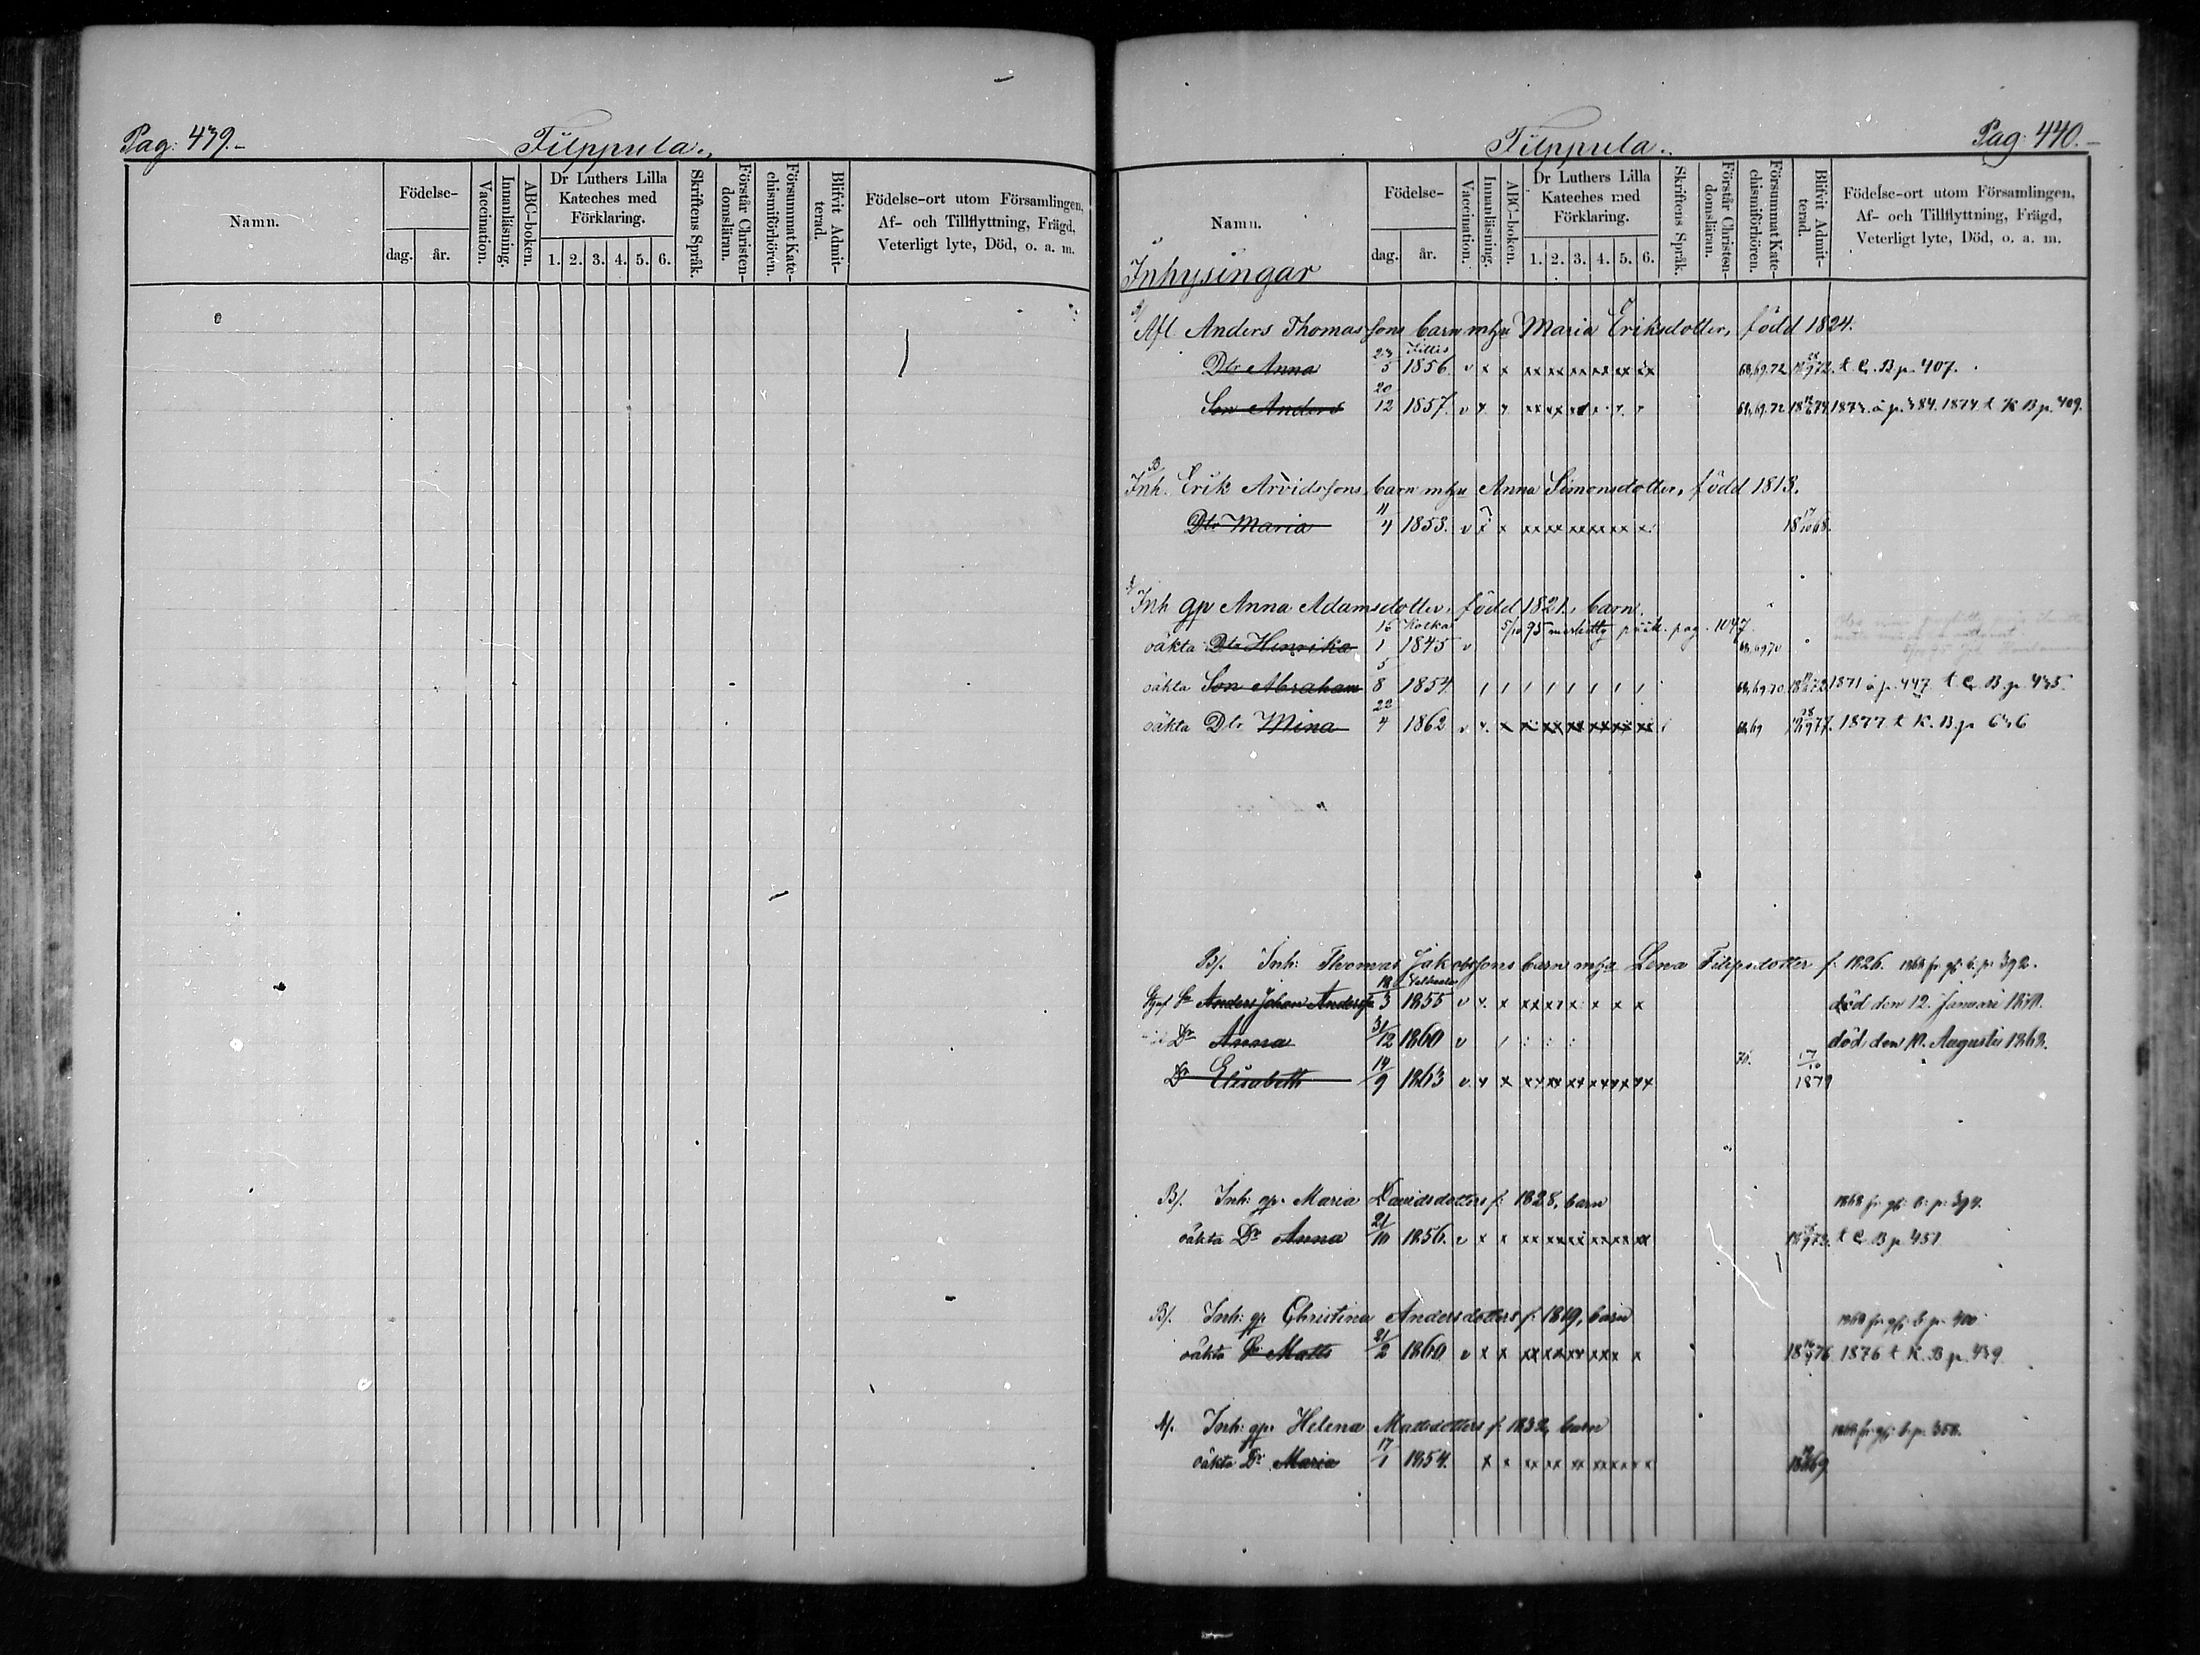 Pag: 439.
Filppula.
Namn.
Födelse-
dag. år.
Vaccination.
Innanläsning.
ABC-boken.
Dr Luthers Lilla
Kateches med
Förklaring.
1. 2. 3. 4. 5. 6.
Skriftens Språk.
Förstår Christen-
domsläran.
Försummat Kate-
chismiförhören.
Blifvit Admit-
terad.
Födelse-ort utom Församlingen,
Af- och Tillflyttning, Frägd,
Veterligt lyte, Död, o. a. m.
Pag: 440.
Filppula.
Namn.
Inhysingar
Födelse-
dag. år.
Vaccination.
Innanläsning.
ABC-boken.
Dr Luthers Lilla
Kateches med
Förklaring.
1. 2. 3. 4. 5. 6.
Skriftens Språk.
Förstår Christen-
domsläran.
Försummat Kate-
chismiförhören.
Blifvit Admit-
terad.
Födelse-ort utom Församlingen,
Af- och Tillflyttning, Frägd,
Veterligt lyte, Död, o. a. m.
Afl Anders Thomassons barn mhu Maria Eriksdotter, född 1824.
Dtr Anna 23/5 1856. v x x xx xx xx xx xx xx 68,69.72 t. C. B p. 407.
Son Anders 20/12 1857. v 68,69.72 1873. à p. 384. 1874 t K B p. 409.
B
Inh. Erik Arvidssons barn mhu Anna Simonsdotter, född 1813.
Dtr Maria 11/4 1853. v x x xx xx xx xx x x 18 17/10 68.
Inh gp Anna Adamsdotter, född 1821, barn.
5/10 95 pag. 1047
oäkta Dtr Henrika 16/1 1845 v 68,69 70
oäkta Son Abraham 5/8 1854 68,69.70 1871 à p. 447. t C. B. p. 435.
oäkta Dtr Mina 22/4 1862 v 68,69 1877. t K. B. p 636
B/. Inh: Thomas Jakobssons barn mhu Lena Filipsdotter f. 1826. 1868 fr. gl. b. p. 392.
Sr Anders Johan Andersson 18/3 1855 v x x xx xx x x x x död den 12. Januari 1870.
Dr Anna 31/12 1860 v död den 10. Augusti 1868.
Dr Elisabeth 14/9 1863 v x x xx xx xx xx xx xx 76. 17/10 1879
B/. Inh: gp. Maria Davidsdotters f. 1828, barn 1868 fr. gl. b. p. 394.
oäkta Dr Anna 21/10 1856. v x x xx xx xx xx xx xx t C. B p. 451
B/. Inh: gp Christina Andersdotters f. 1819, barn 1868 fr. gl. b. p. 400
oäkta Sr Matts 21/2 1860 v x x xx xx xx xx x x 1876 t K. B p. 439.
A/. Inh: gp. Helena Mattsdotters f. 1832, barn 1868 fr. gl. b. p. 358.
oäkta Dr Maria 17/1 1854. x x xx xx xx xx x x